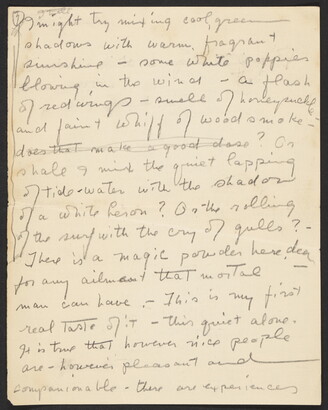 I might try mixing cool green
shadows with warm, fragrant
sunshine – some white poppies
blowing in the wind – a flash
of red wings – smell of honeysuckle
and faint whiff of wood smoke –
does that make a good dose? Or
shall I mix the quiet lapping
of tide-water with the shadow
of a white heron? Or the rolling
of the surf with the cry of gulls? –
There is a magic powder here, dear
for any ailment that mortal
man can have. – This is my first
real taste of it – this quiet alone.
It is true that however nice people
are – however pleasant and
companionable – there are experiences